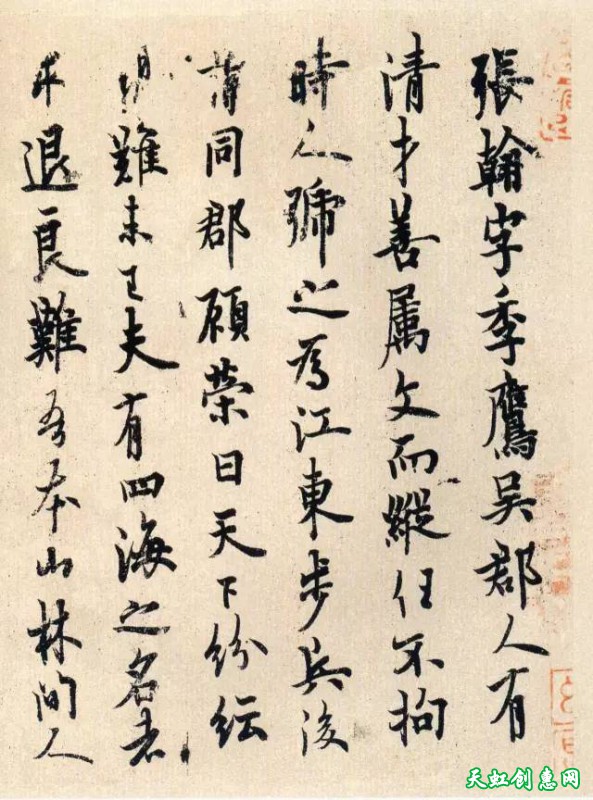 張翰字季鷹吳郡人有
清才善属文而縱任不拘
時人號之為江東步兵後
謂同郡顧榮曰天下紛紜
禍難未已夫有四海之名者
求退良難吾本山林間人
天虹创惠网